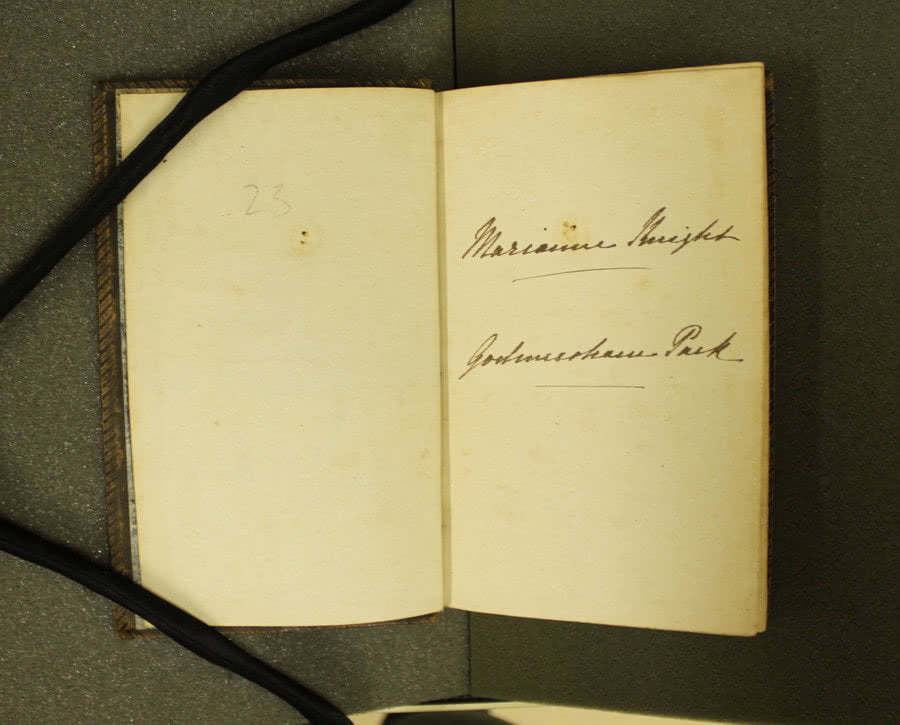 23
Marianne Knight
Godmersham Park